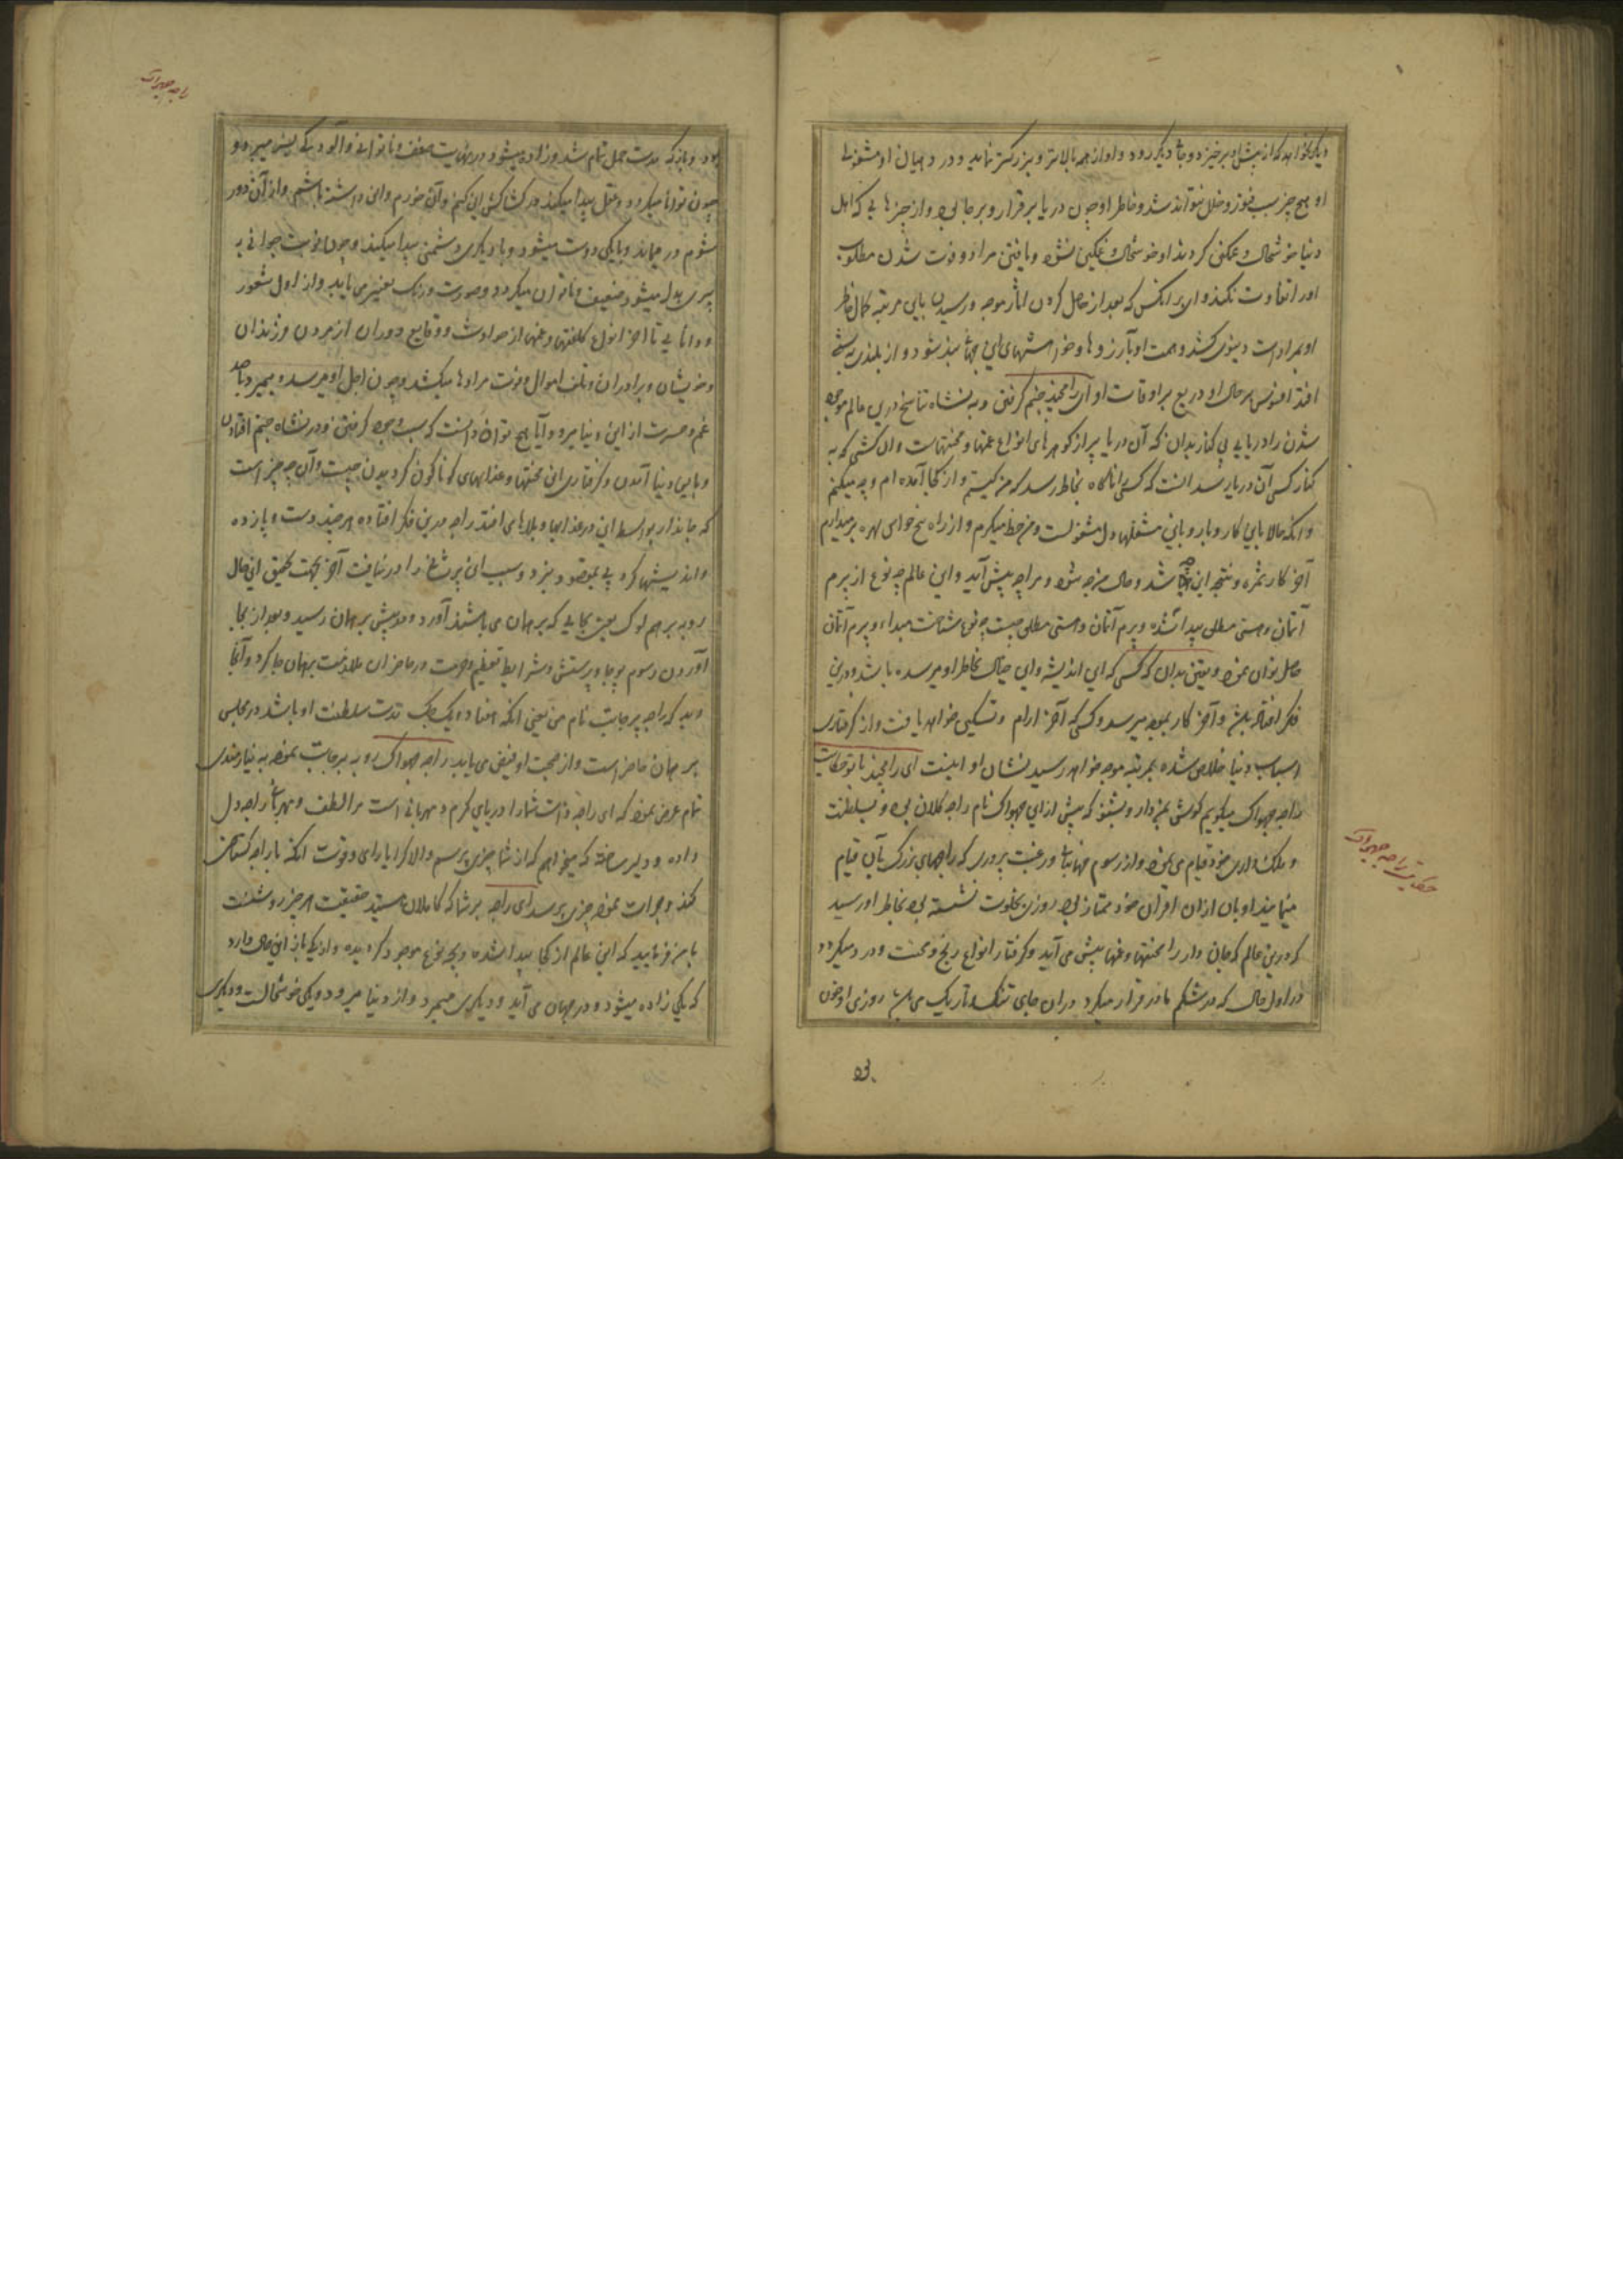 دیگر نخواهد که از پیش او برخیزد و بجای دیگر رود و او از همه بالاتر و بزرگتر نماید و در دهیان او مشغولی
او هیچ چیز سبب فتور و خلل نتواند شد و خاطر او چون دریا برقرار و برجا بود و از چیزهایی که اهل
دنیا خوشحال و غمگین گردند او خوشحال و غمگین نشود و یافتن مراد و فوت شدن مطلوب
او را تفاوت نکند وای بر آنکس که بعد از حاصل کردن آثار موجه و رسیدن باین مرتبه کمال خاطر
او بمرادات دنیوی کشد و همت او بآرزوها و خواهشهای این جهان بند شود و از بلندی به پستی
افتد افسوس بر حال او و دریغ بر اوقات او ای رامچند جنم گرفتن و به نشاه تناسخ درین عالم موجود
شدن را دریایی بی کنار بدان که آن دریا پر از گوهرهای انواع غمها و محنتهاست و آن کشتی که به
کنار کسی آن دریا رسد آنست که کسی را ناگاه بخاطر رسد که من کیستم و از کجا آمده ام و چه میکنم
و آنکه حالا باین کار و بار و باین مشغلها دل مشغولست و من حظ میگیرم و از راه پنج حواس بهره برمیدارم
آخر کار ثمره و نتیجه این چه باشد و حال من چه شود و مرا چه پیش آید و این عالم چه نوع از برم
آتمان و هستی مطلق پیدا شده و برم آتمان و هستی مطلق چیست چه نوع شناخت مبداء و برم آتمان
حاصل توان نمود و یقین بدان که کسی که این اندیشه و این خیال بخاطر او میرسیده باشد و درین
فکر افتاده باشد آخر کار بمقصود میرسد و کسی که آخر آرام و تسکین خواهد یافت و از گرفتاری
اسباب دنیا خلاص شده بمرتبه موجه خواهد رسید نشان او اینست ای رامچند با تو حکایت
راجه جهواک میگویم گوش بمن دار و بشنو که پیش ازین جهواک نام راجه کلان بود و بسلطنت
و ملک داری خود قیام می نمود و از رسوم جهانبانی و رعیت پروری که راجهای بزرگ بآن قیام
مینمایند او بآن از آن اقران خود ممتاز بود روزی بخلوت نشسته بود بخاطر او رسید
که درین عالم که جان دار را محنتها و غمها پیش می آید و گرفتار انواع رنج و محنت و درد میگردد
در اول حال که در شکم مادر قرار میگیرد در آن جای تنگ و تاریک می باشد روزی او خون
حکایت راجه جهواک
۵۳
راجه جهواک
بود و بازکه مدت حمل تمام شد و زاده میشود در نهایت ضعف و ناتوانی و آلودگی بسر میبرد و
چون توانا میگردد و عقل پیدا میکند در کشاکش این کنم و آن خورم و این داشته باشم و از آن دور
شوم در میماند و با یکی دوست میشود و با دیگری دشمنی پیدا میکند و چون نوبت جوانی به
پیری بدل میشود ضعیف و ناتوان میگردد و صورت و رنگ تغییر می یابد و از اول شعور
و دانایی تا آخر انواع کلفتها و غمها از حوادث و وقایع دوران از مردن فرزندان
و خویشان و برادران و تلف اموال و فوت مرادها میکشد و چون اجل او میرسد و میمیرد با صد
غم و حسرت از این دنیا میرود آیا هیچ توان دانست که سبب وجود گرفتن و در نشاه جنم افتادن
و باین دنیا آمدن و گرفتار این محنتها و عذابهای گوناگون گردیدن چیست و آن چه چیز است
که جاندار بواسطه این در عذابها و بلاها می افتد راجه درین فکر افتاده هر چند دست و پا زده
و اندیشها کرد پی بمقصود نبرد و سبب این پرشاخ را در نیافت آخر بجهت تحقیق این حال
رو به برهم لوک یعنی بجایی که برهمان می باشند آورد و پیش برهمان رسید و بعد از بجا
آوردن رسوم پوجا و پرستش و شرایط تعظیم و حرمت در حاضران ملازمت برهمان جا کرد و آنجا
دید که راجه پرجاپت نام من یعنی آنکه هفتاد و یک جگ مدت سلطنت او باشد در مجلس
برهمان حاضر است و از صحبت او فیض می یابد راجه جهواک رو به پرجاپت نموده به نیازمندی
تمام عرض نمود که ای راجه ذات شما را دریای کرم و مهربانی است مرا لطف و مهربانی راجه دل
داده و دلیر ساخته که میخواهم که از شما چیزی پرسم والا کرا یارای و قوت آنکه با راجه گستاخی
کند و جرات نموده چیزی پرسد ای راجه بر شما که کاملان هستید حقیقت هر چیز روشنست
با من فرمایید که این عالم از کجا پیدا شده و بچه نوع موجود گردیده و از یکجا این حال دارد
که یکی زاده میشود و در جهان می آید و دیگری میمیرد و از دنیا میرود و یکی خوشحالست و دیگری